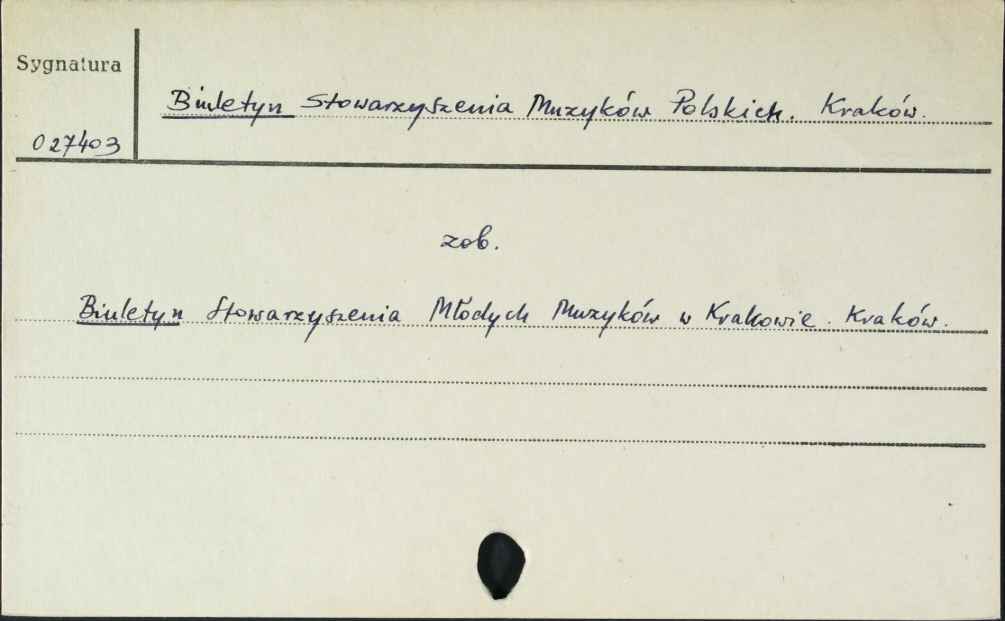 Sygnatura
Biuletyn Stowarzyszenia Muzyków Polskich. Kraków.
027403
zob.
Biuletyn Stowarzyszenia Młodych Muzyków w Krakowie. Kraków.